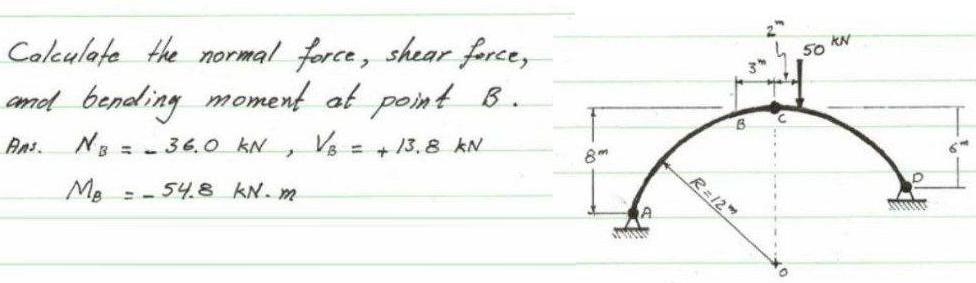 Calculate the normal force, shear force,
and bending moment at point B.
Ans. N_B = - 36.0 kN , V_B = + 13.8 kN
M_B = - 54.8 kN.m
2m
50 kN
3m
B
C
8m
6m
R=12m
A
D
O